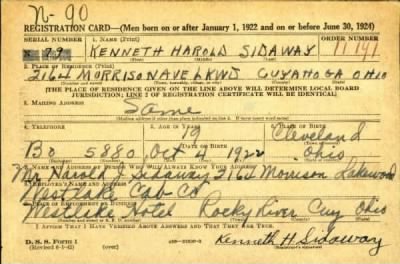 N-90
REGISTRATION CARD—(Men born on or after January 1, 1922 and on or before June 30, 1924)
SERIAL NUMBER 1. NAME (Print) ORDER NUMBER
N 79 KENNETH HAROLD SIDAWAY 11141
(First) (Middle) (Last)
2. PLACE OF RESIDENCE (Print)
2164 MORRISON AVE LKWD CUYAHOGA OHIO
(Number and street) (Town, township, village, or city) (County) (State)
[THE PLACE OF RESIDENCE GIVEN ON THE LINE ABOVE WILL DETERMINE LOCAL BOARD
JURISDICTION; LINE 2 OF REGISTRATION CERTIFICATE WILL BE IDENTICAL]
3. MAILING ADDRESS
Same
4. TELEPHONE 5. AGE IN YEARS 6. PLACE OF BIRTH
Cleveland
DATE OF BIRTH
Bo 5880 Oct 1922 Ohio
7. NAME AND ADDRESS OF PERSON WHO WILL ALWAYS KNOW YOUR ADDRESS
Mr. Harold J. Sidaway 2164 Morrison Lakewood
8. EMPLOYER'S NAME AND ADDRESS
Westlake Cab Co
9. PLACE OF EMPLOYMENT OR BUSINESS
Westlake Hotel Rocky River Cuy Ohio
I AFFIRM THAT I HAVE VERIFIED ABOVE ANSWERS AND THAT THEY ARE TRUE.
D. S. S. Form 1
(over)
Kenneth H Sidaway